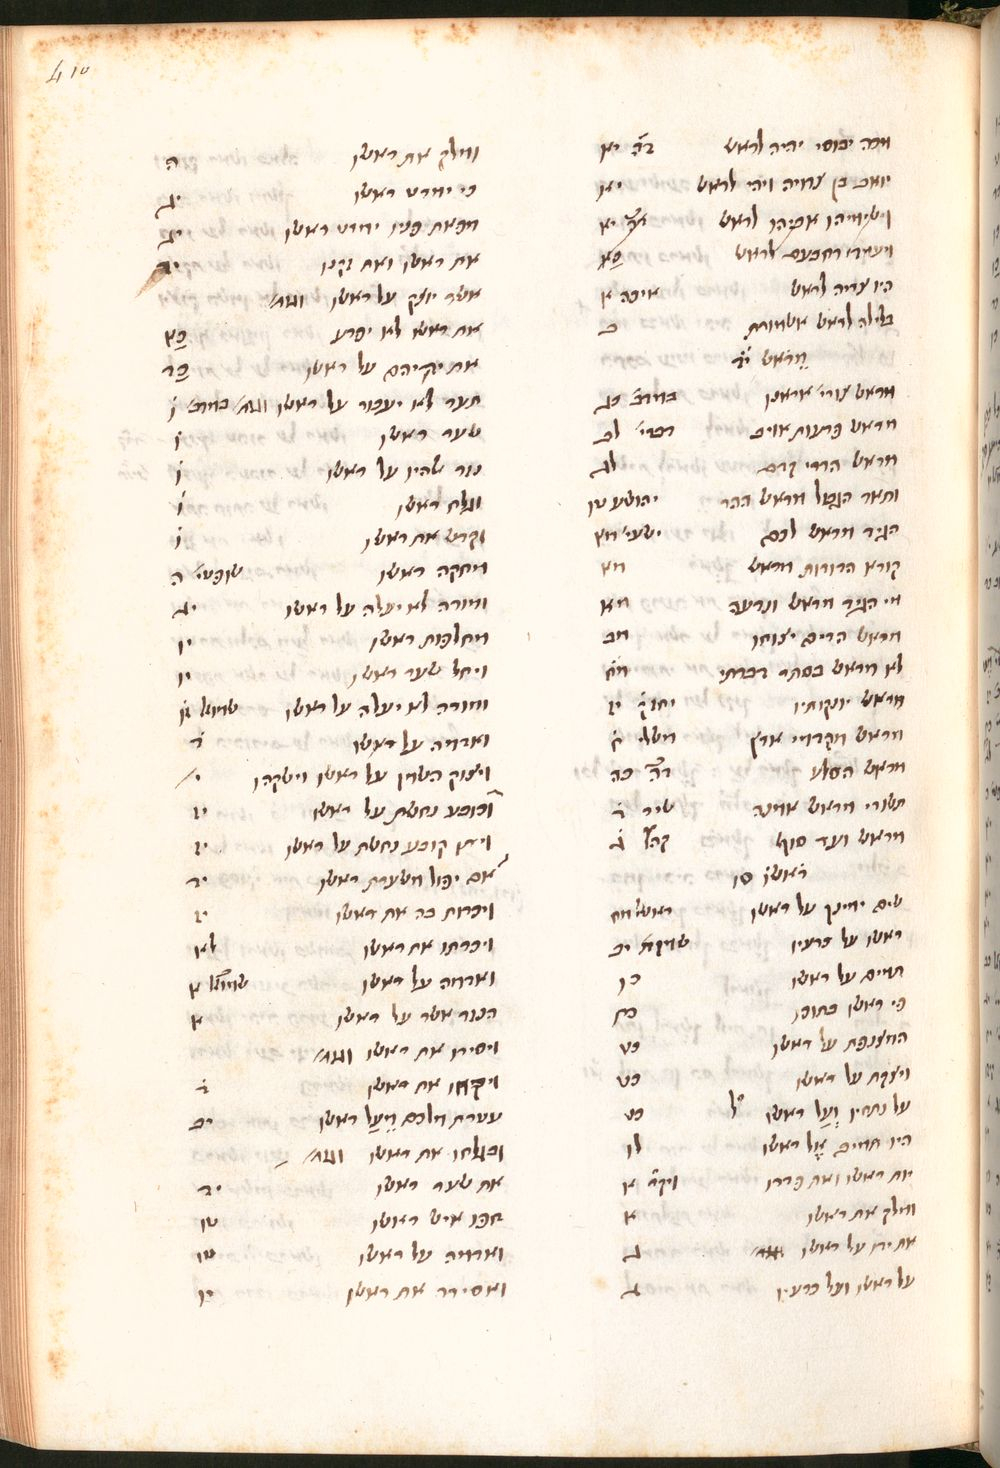 410
מכה יבוסי יהיה לראש דה יא
יואב בן צרויה ויהי לראש יא
וישימיהו אביהו לראש יא
ויעמד רחבעם לראש
היו צריה לראש איכה א
בלילה לראש אשמורת ב
מראש יד
מראש צורי אראנו במדב כג
מראש פרעות אויב דברי לב
מראש הררי קדם לג
ותאר הגבול מראש ההר יהושע טו
הגד מראש לכם ישעי מ
קורא הדורות מראש מא
מי הגיד מראש ונדעה מא
מראש הרים יצוחו מב
לא מראש בסתר דברתי מח
מראש יונקותיו יחזק יז
מראש עפרות תבל משלי ח
מראש הסלע דה כה
תשורי מראש אמנה שיר ד
מראש ועד סוף קהל ג
ראשו סו
שים ימינך על ראשו בראש מח
ראשו על כרעיו שמות יב
תמים על ראשו כו
פי ראשו בתוכו כח
המצנפת על ראשו כט
ויצקת על ראשו כט
על נתחיו ועל ראשו ל כט
היו תמים אל ראשו לו
את ראשו ואת פדרו ויקר א
ומלק את ראשו א
את ידו על ראשו ג
על ראשו ועל כרעיו ג
ומלק את ראשו ה
כי ימרט ראשו יג
מפאת פניו ימרט ראשו יג
את ראשו ואת זקנו יד
אשר יוצק על ראשו וגו
את ראשו לא יפרע כא
את ידיהם על ראשו כד
תער לא יעבור על ראשו וגו במדב ו
שער ראשו ו
נזר אלהיו על ראשו ו
וגלח ראשו ו
וקדש את ראשו ו
מחקה ראשו שופטי ה
ומורה לא יעלה על ראשו יג
מחלפות ראשו יו
ויחל שער ראשו יו
ומורה לא יעלה על ראשו שמואל א
ואדמה על ראשו ד
ויצוק השמן על ראשו וישקהו י
וכובע נחשת על ראשו יז
ויתן קובע נחשת על ראשו יז
אם יפול משערת ראשו יד
ויכרות בה את ראשו יז
ויכרתו את ראשו לא
ואדמה על ראשו א
הנזר אשר על ראשו א
ויסירו את ראשו וגו
ויקחו את ראשו ד
עטרת מלכם מעל ראשו יב
ובגלחו את ראשו וגו
את שער ראשו יד
חפו איש ראשו טו
ואדמה על ראשו טו
ואסירה את ראשו יו